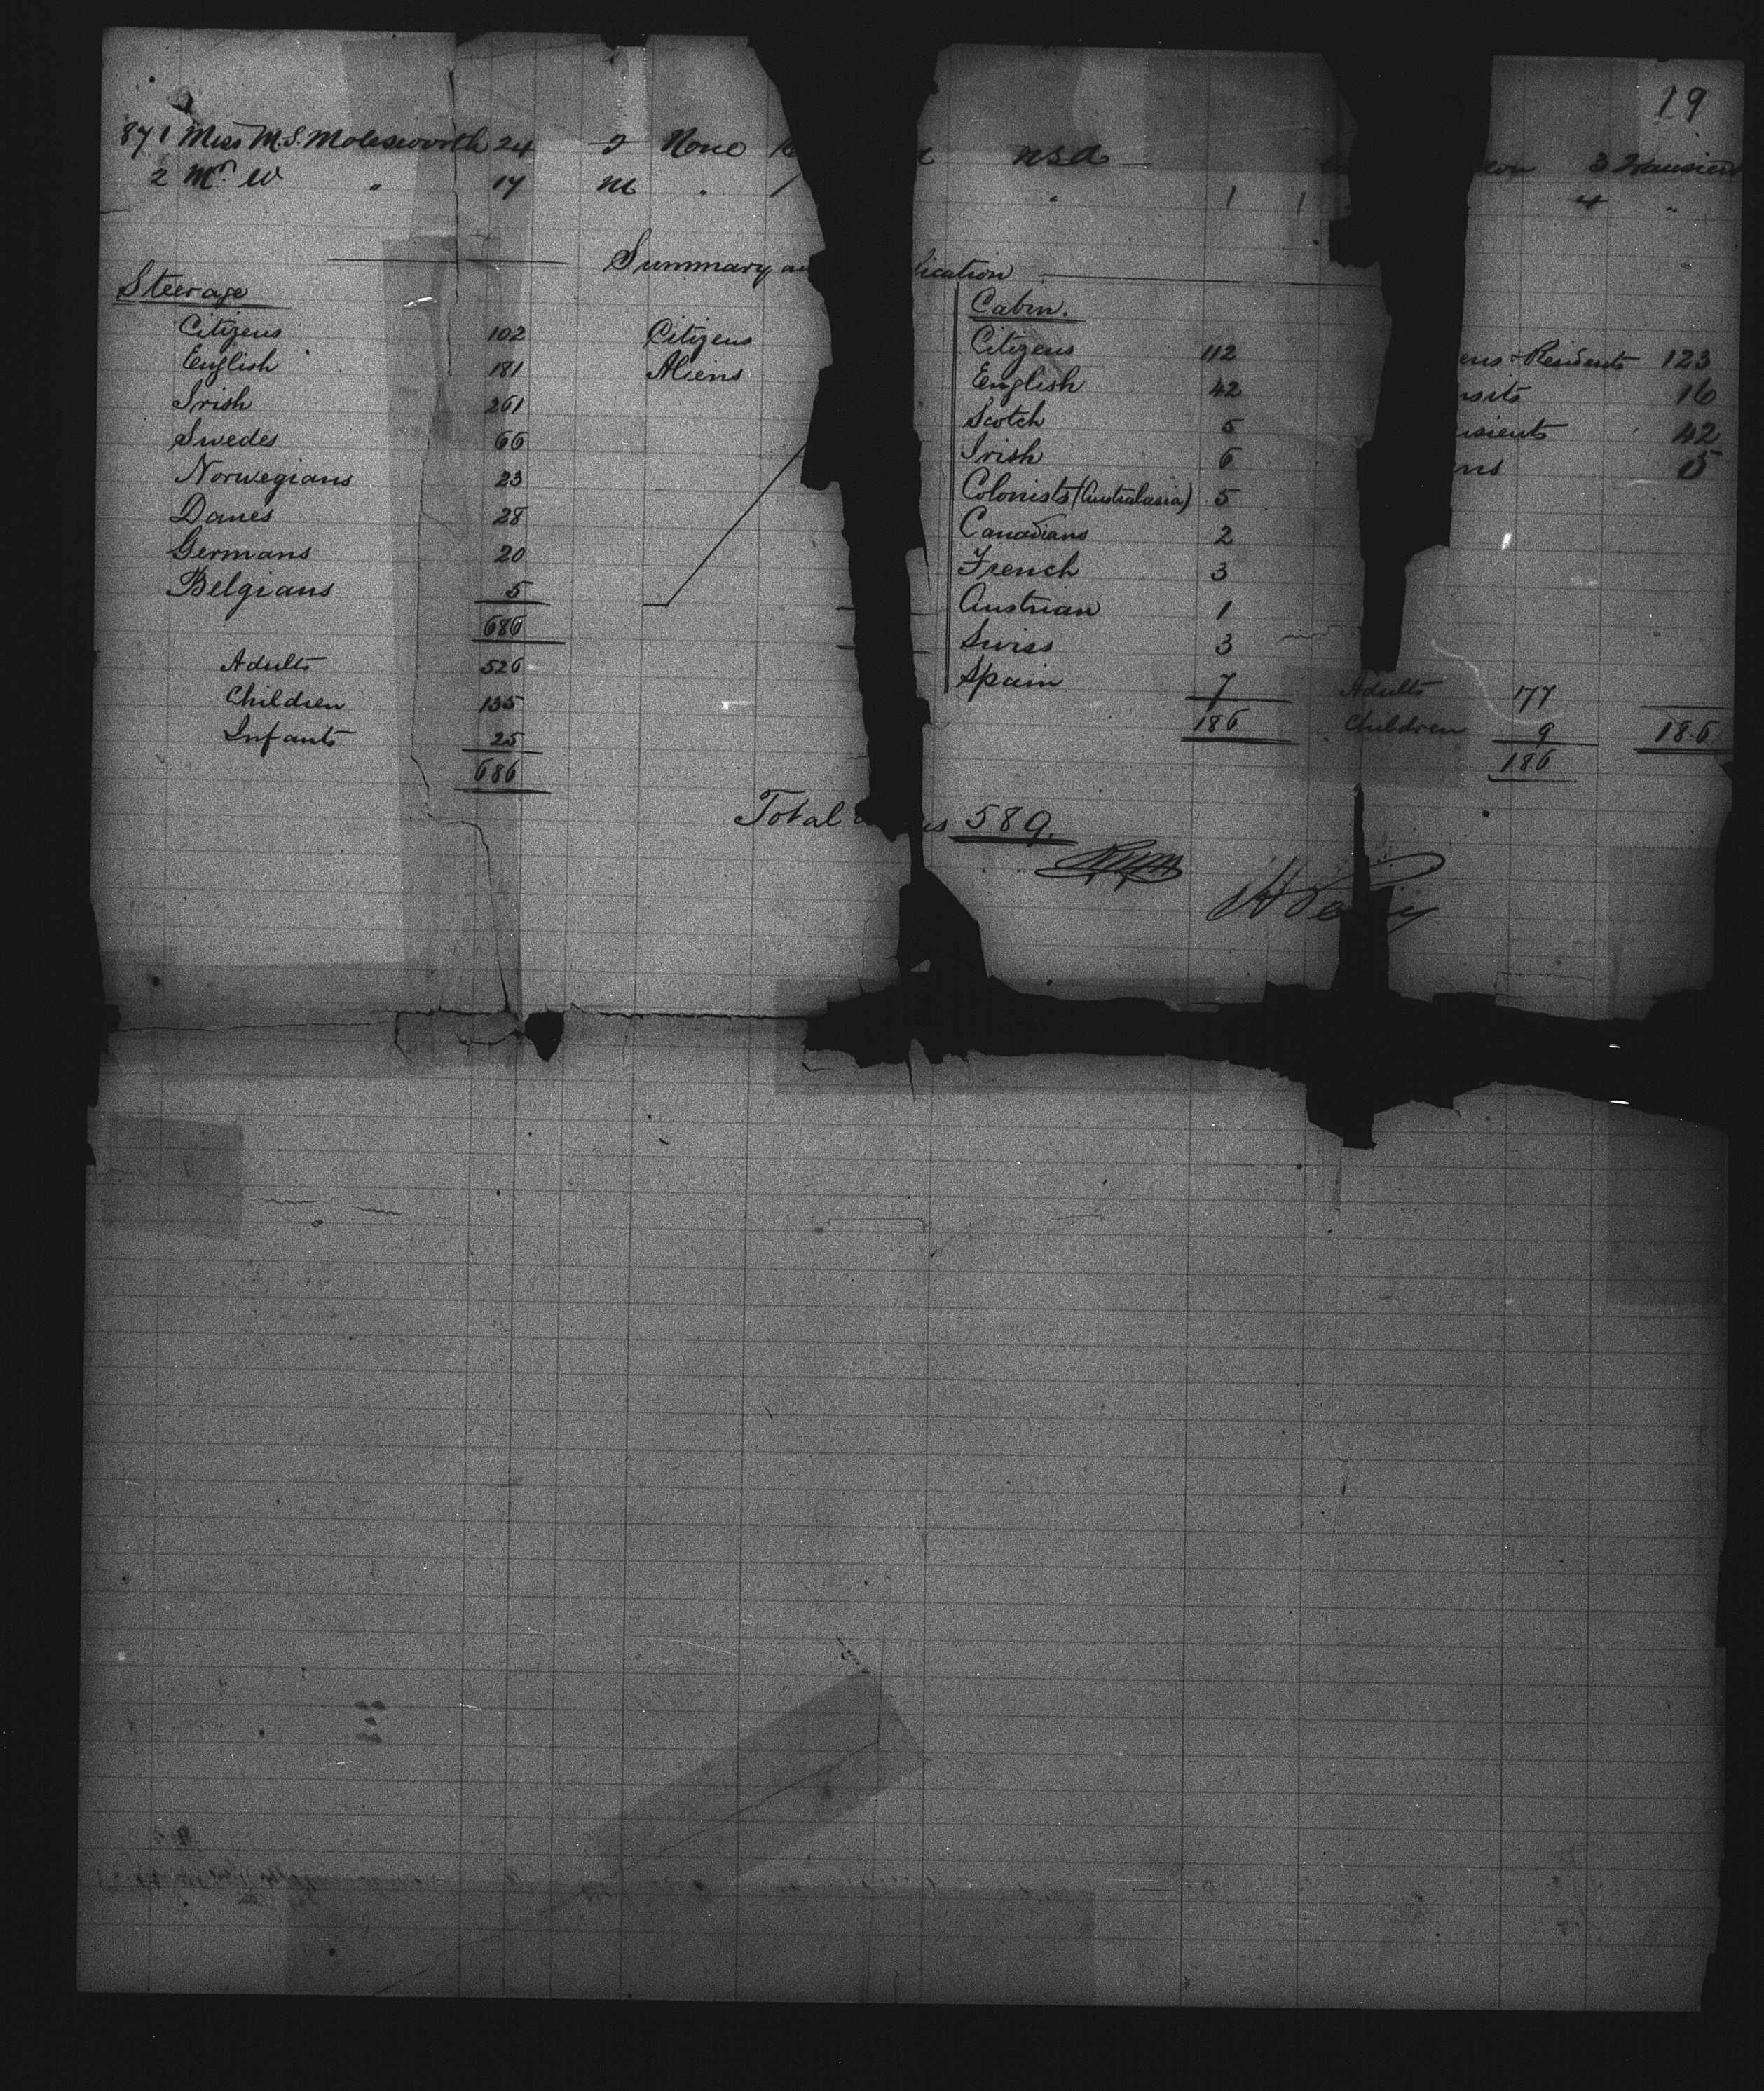 19
871 Miss M.S. Molesworth 24 f None
2 Mr. W " 17 m "
U S A 3 Transient
" 1 1 4 "
Summary
lication
Steerage
Citizens 102
English 181
Irish 261
Swedes 66
Norwegians 23
Danes 28
Germans 20
Belgians 5
686
Adults 526
Children 135
Infants 25
686
Citizens
Aliens
Cabin.
Citizens 112
English 42
Scotch 5
Irish 6
Colonists (Australasia) 5
Canadians 2
French 3
Austrian 1
Swiss 3
Spain 7
186
ens & Residents 123
nsits 16
nsients 42
ns 5
186
Adults 177
Children 9
186
Total 589.